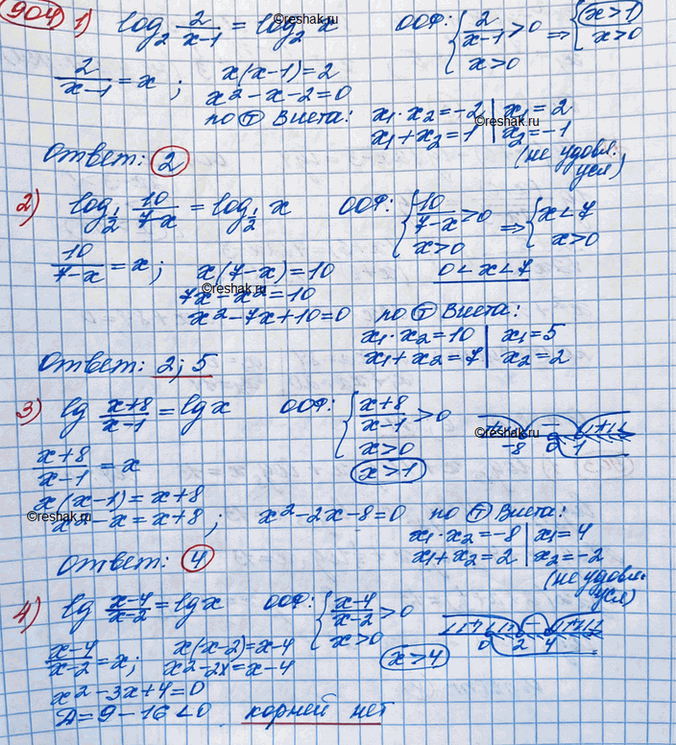 904 1) log₂ 2/(x-1) = log₂ x ООФ: { 2/(x-1) > 0 ⇒ { x > 1
x > 0 x > 0
2/(x-1) = x ; x(x-1) = 2
x² - x - 2 = 0
по Ⓣ Виета: x₁·x₂ = -2 | x₁ = 2
x₁+x₂ = 1 | x₂ = -1
(не удовл.
усл)
Ответ: 2
2) log_{1/2} 10/(7-x) = log_{1/2} x ООФ: { 10/(7-x) > 0 ⇒ { x < 7
x > 0 x > 0
10/(7-x) = x ; x(7-x) = 10 0 < x < 7
7x - x² = 10
x² - 7x + 10 = 0 по Ⓣ Виета:
x₁·x₂ = 10 | x₁ = 5
x₁+x₂ = 7 | x₂ = 2
Ответ: 2; 5
3) lg (x+8)/(x-1) = lg x ООФ: { (x+8)/(x-1) > 0
x > 0
x > 1
-8 0 1
(x+8)/(x-1) = x
x(x-1) = x+8
x² - x = x+8 ; x² - 2x - 8 = 0 по Ⓣ Виета:
x₁·x₂ = -8 | x₁ = 4
x₁+x₂ = 2 | x₂ = -2
(не удовл.
усл)
Ответ: 4
4) lg (x-4)/(x-2) = lg x ООФ: { (x-4)/(x-2) > 0
x > 0
0 2 4
(x-4)/(x-2) = x ; x(x-2) = x-4 x > 4
x² - 2x = x-4
x² - 3x + 4 = 0
Д = 9 - 16 < 0 корней нет
©reshak.ru
©reshak.ru
©reshak.ru
©reshak.ru
©reshak.ru